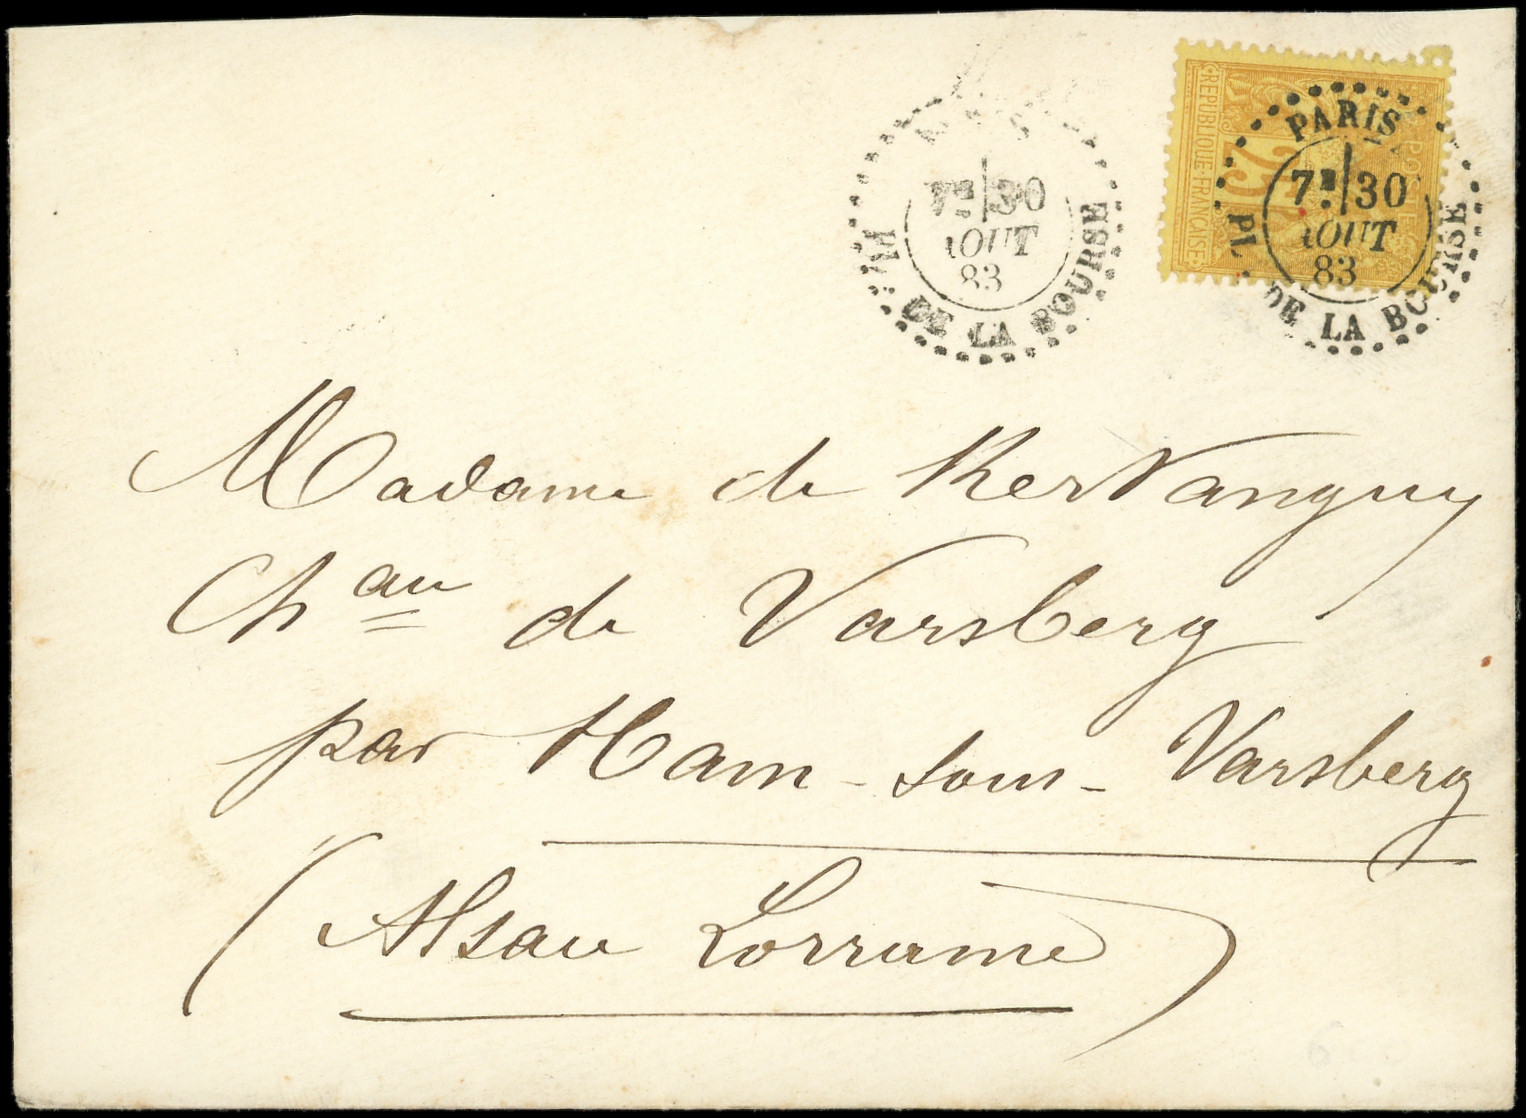 PARIS
7ᴱ 30
AOUT
83
PL. DE LA BOURSE
7ᴱ 30
AOUT
83
PL. DE LA BOURSE
REPUBLIQUE FRANCAISE
25
Madame de KerVanguy
Chau de Varsberg
par Ham-sous-Varsberg
(Alsace Lorraine)